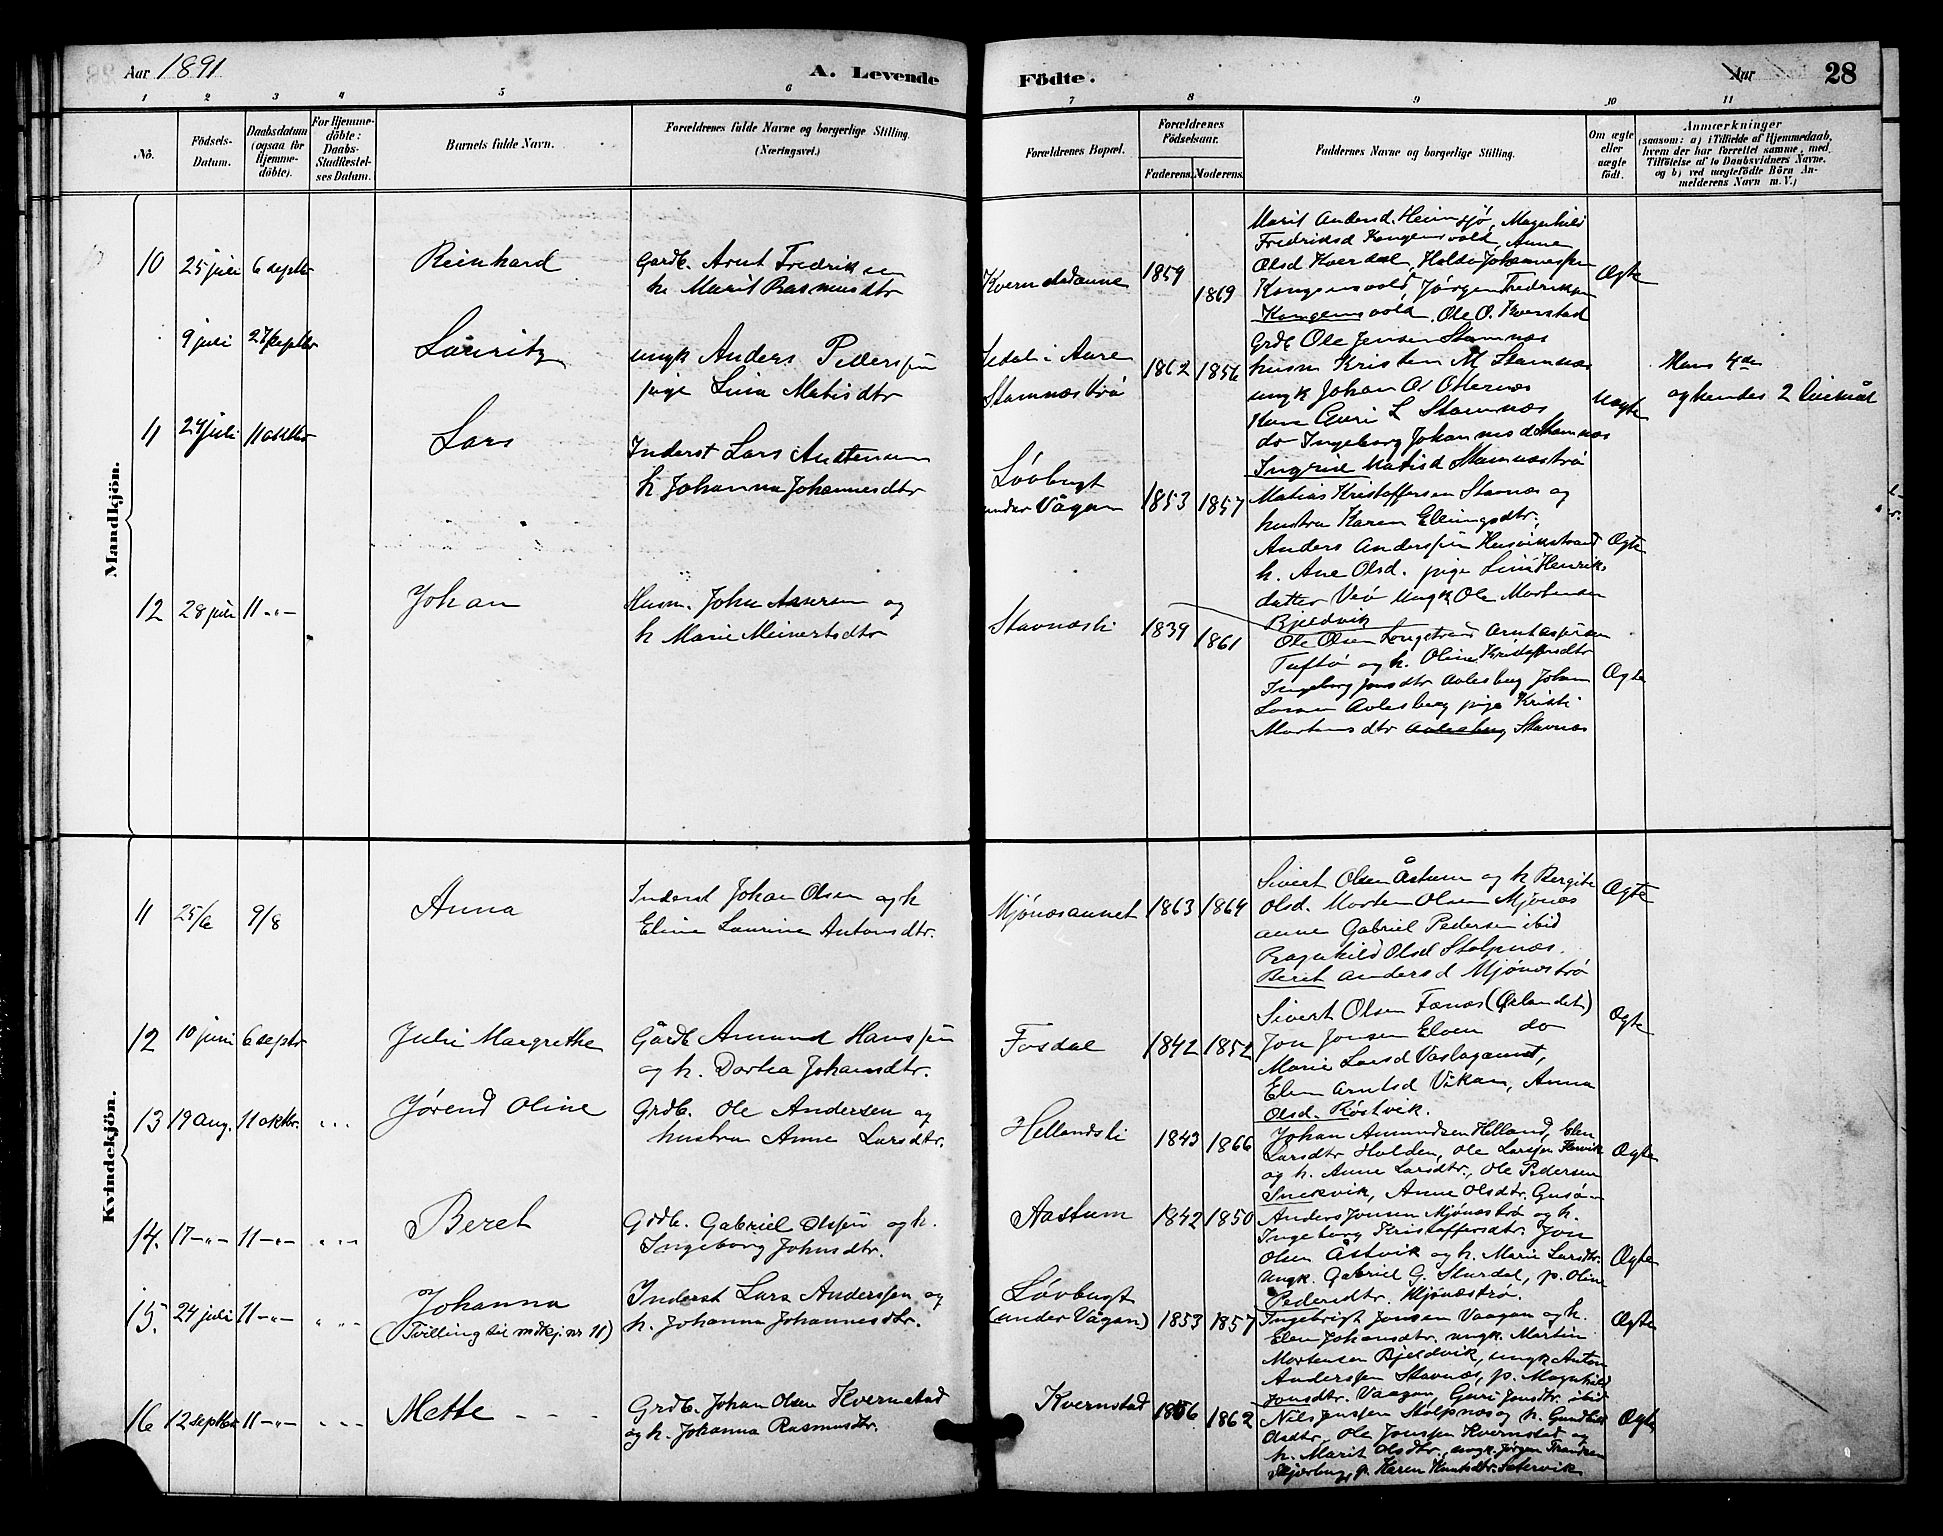 Aar 1891
A. Levende
Födte.
Aar
28
1 2 3 4 5 6 7 8 9 10 11
No.
Födsels-
Datum.
Daabsdatum
(ogsaa for
Hjemme-
döbte).
For Hjemme-
döbte:
Daabs-
Stadfæstel-
ses Datum.
Barnets fulde Navn.
Forældrenes fulde Navne og borgerlige Stilling.
(Næringsvei.)
Forældrenes Bopæl.
Forældrenes
Födselsaar.
Faderens. Moderens.
Faddernes Navne og borgerlige Stilling.
Om ægte
eller
uægte
födt.
Anmærkninger
(saasom: a) i Tilfælde af Hjemmedaab,
hvem der har forrettet samme, med
Tilföielse af to Daabsvidners Navne,
og b) ved uægtefödte Börn An-
melderens Navn m. V.)
Mandkjön.
10 25 juli 6 septbr
Reinhard
Gardb. Arnt Fredriksen
h. Marit Rasmusdtr
Kvernstadanne
1859
1869
Marit Andersd. Heimsjø, Magnhild
Fredriksd Kongensvold, Anne
Olsd Kverdal, Johannessen
Kongensvold, Jørgen Fredriksen
Kongensvold, Ole O. Kverstad
Ægte
9 juli 27 septbr
Lauritz
ungk Anders Pederssen
pige Lina Matisdtr
i Aure
Stamnestrø
1862 1856
Grdb Ole Jensen Stamnes
husm Kristen M Stamnes
ungk Johan O Otternes
Kone Guri L Stamnes
do Ingeborg Johannesd Stamnes
Matisd Stamnestrø
Uægte
Hans 4de
og hendes 2 leiemål
11 24 juli 11 oktbr
Lars
Inderst Lars Andersen
h Johanna Johannesdtr
Løvbugt
under Vågan
1853 1857
Matias Kristoffersen Stavnes og
hustru Karen Ellingsdtr,
Anders Anderssen Husvikstrand
h. Ane Olsd. pige Lina Henriks
datter Veø Ungk Ole Mortensen
Bjeldvik
Ægte
12 28 juli 11 -"-
Johan
Husm. John Assersen og
h Marie Meinertsdtr
Stavnesli
1839
1861
Ole Olsen Longstrand
Tuftø og h. Oline Kristoffersdtr
Ingeborg Jonsdtr Aalesberg Johan
Larsen Aalesberg pige Kristi
Mortensdtr Aalesberg Stavnes
Ægte
Kvindekjön.
11 25/6 9/8
Anna
Inderst Johan Olsen og h
Eline Laurine Antonsdtr.
Mjønesaunet
1863 1864
Sivert Olsen Åstum og h Bergite
Olsd. Morten Olsen Mjønes
aune Gabriel Pedersen ibid
Ragnhild Olsd Stolpnes.
Beret Andersd Mjønestrø
Ægte
12 10 juni 6 septr
Julie Margrethe
Gårdb. Amund Hanssen
og h. Dortea Johansdtr.
Fosdal
1842 1852
Sivert Olsen Fænes (Ørlandet)
Jon Jonsen Elven do
Marie Larsd Vaslagaunet,
Elen Arntsd Vikan, Anna
Olsd. Røstvik.
Ægte
13 19 aug. 11 oktbr. "..
Jørend Oline
Grdb. Ole Andersen og
hustru Anne Larsdtr.
Hellandsli
1843 1866
Johan Amundsen Helland, Elen
Larsdtr Holden, Ole Larssen
og h. Anne Larsdtr., Ole Pedersen
Snekvik, Anne Olsdtr. Gusø
Ægte
14. 17 -"- 11 -"- "..
Beret
Grdb. Gabriel Olssen og h.
Ingeborg Johnsdtr.
Aastum
1842 1850
Anders Jonsen Mjønestrø og h.
Ingeborg Kristoffersdtr. Jon
Olsen Åstvik og h. Marie Larsdtr.
Ungk. Gabriel G. Sturdal, p. Oline
Pedersdtr. Mjønestrø.
Ægte
15. 24 juli 11 -"- "..
Johanna
(Tvilling til mdkj. nr 11)
Inderst Lars Anderssen og
h. Johanna Johannesdtr.
Løvbugt
(under Vågan)
1853 1857
Ingebrigt Jonsen Vaagan og h.
Elen Johansdtr. ungk. Martin
Mortensen Bjeldvik, ungk Anton
Anderssen Stavnes, p. Magnhild
Jonsdtr. Vaagan, Guri Jonsdtr. ibid
Ægte
16 12 septbr 11 -"- "..
Mette
Grdb. Johan Olsen Kvernstad
og h. Johanna Rasmusdtr.
Kvernstad
1856 1862
Nils Jenssen Stolpnes og h. Gunhild
Olsdtr. Ole Jonssen Kvernstad og
h. Marit Olsdtr., ungk. Jørgen
p. Karen Sætervik
Ægte